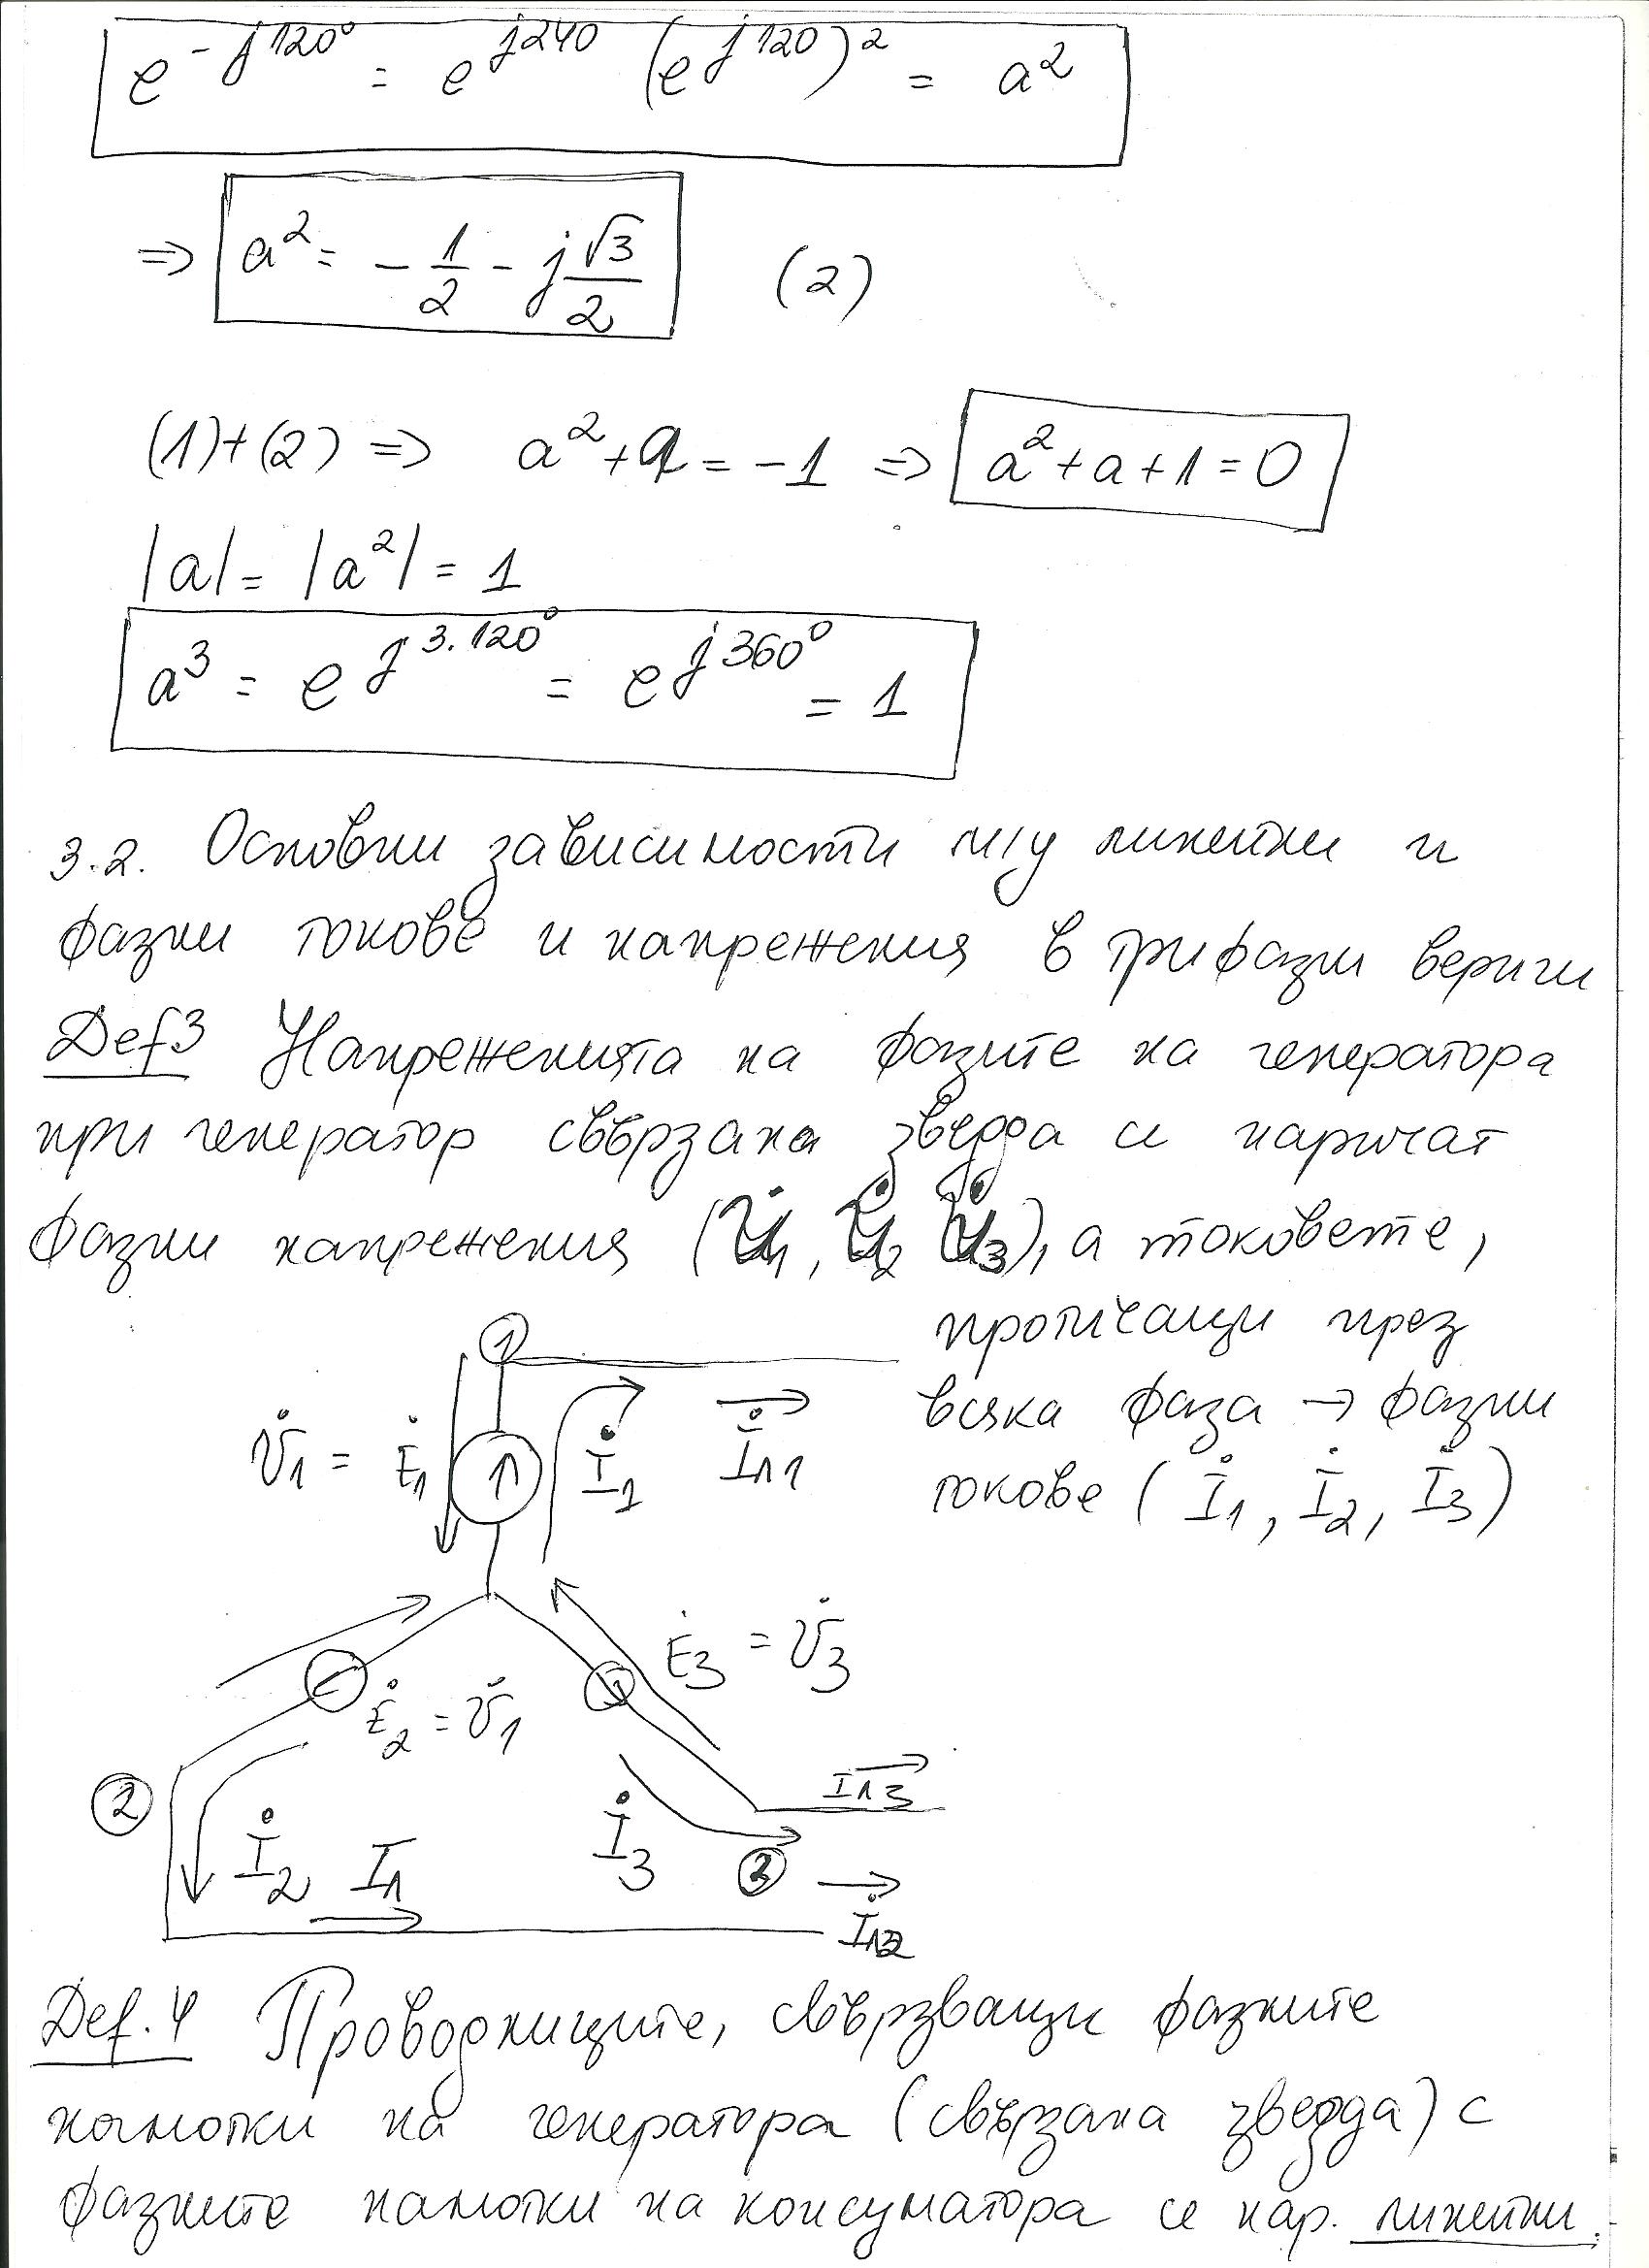 e^{-j120°} = e^{j240} (e^{j120})² = a²
=> a² = - 1/2 - j √3/2 (2)
(1)+(2) => a² + a = -1 => a² + a + 1 = 0
|a| = |a²| = 1
a³ = e^{j3.120°} = e^{j360°} = 1
3.2. Основни зависимости м/у линейни и
фазни токове и напрежения в трифазни вериги
Def3 Напреженията на фазите на генератора
при генератор свързана звезда се наричат
фазни напрежения (U̇1, U̇2 U̇3), а токовете,
протичащи през
всяка фаза → фазни
токове (İ1, İ2, İ3)
1
U̇1 = Ė1 İ1 İл1
Ė3 = U̇3
Ė2 = U̇1
Iл3
2 İ2 I1 İ3 3
İл2
Def.4 Проводниците, свързващи фазните
намотки на генератора (свързана звезда) с
фазните намотки на консуматора се нар. линейни.